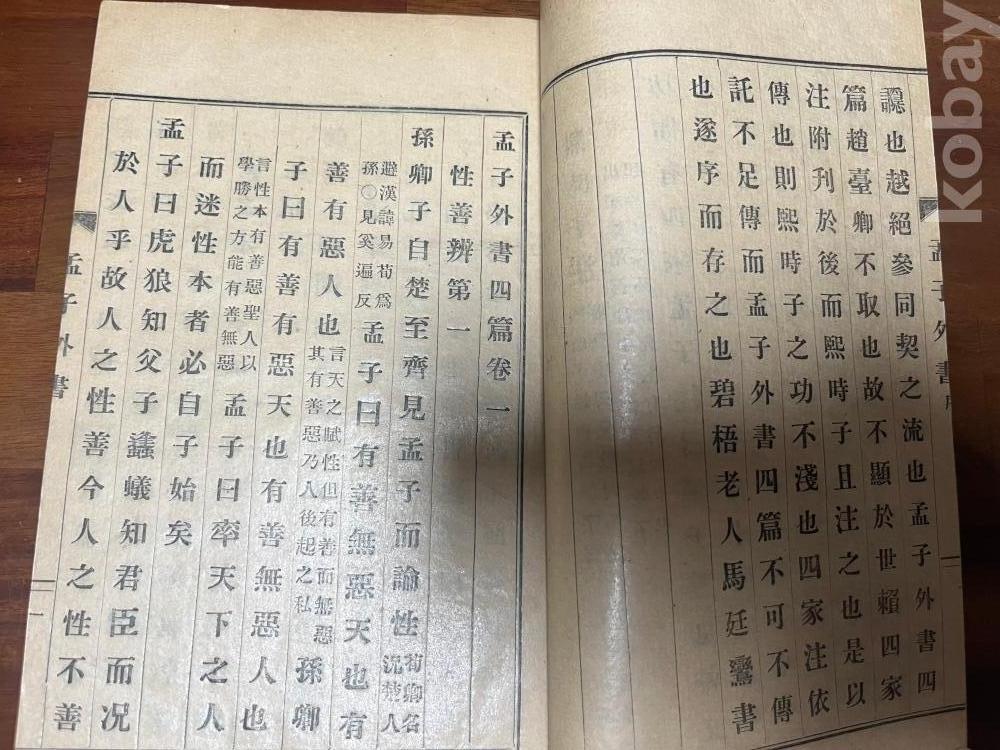 讔也越絕參同契之流也孟子外書四
篇趙臺卿不取也故不顯於世賴四家
注附刊於後而熙時子且注之也是以
傳也則熙時子之功不淺也四家注依
託不足傳而孟子外書四篇不可不傳
也遂序而存之也碧梧老人馬廷鸞書
孟子外書
孟子外書四篇卷一
性善辨第一
孫卿子自楚至齊見孟子而論性荀卿名況楚人
避漢諱易荀為孫○見奚遍反孟子曰有善無惡天也有
善有惡人也言天之賦性但有善而無惡其有善惡乃人後起之私孫卿
子曰有善有惡天也有善無惡人也
言性本有善惡聖人以學勝之方能有善無惡孟子曰率天下之人
而迷性本者必自子始矣
孟子曰虎狼知父子蠭蟻知君臣而況
於人乎故人之性善今人之性不善
孟子外書 一
kobay